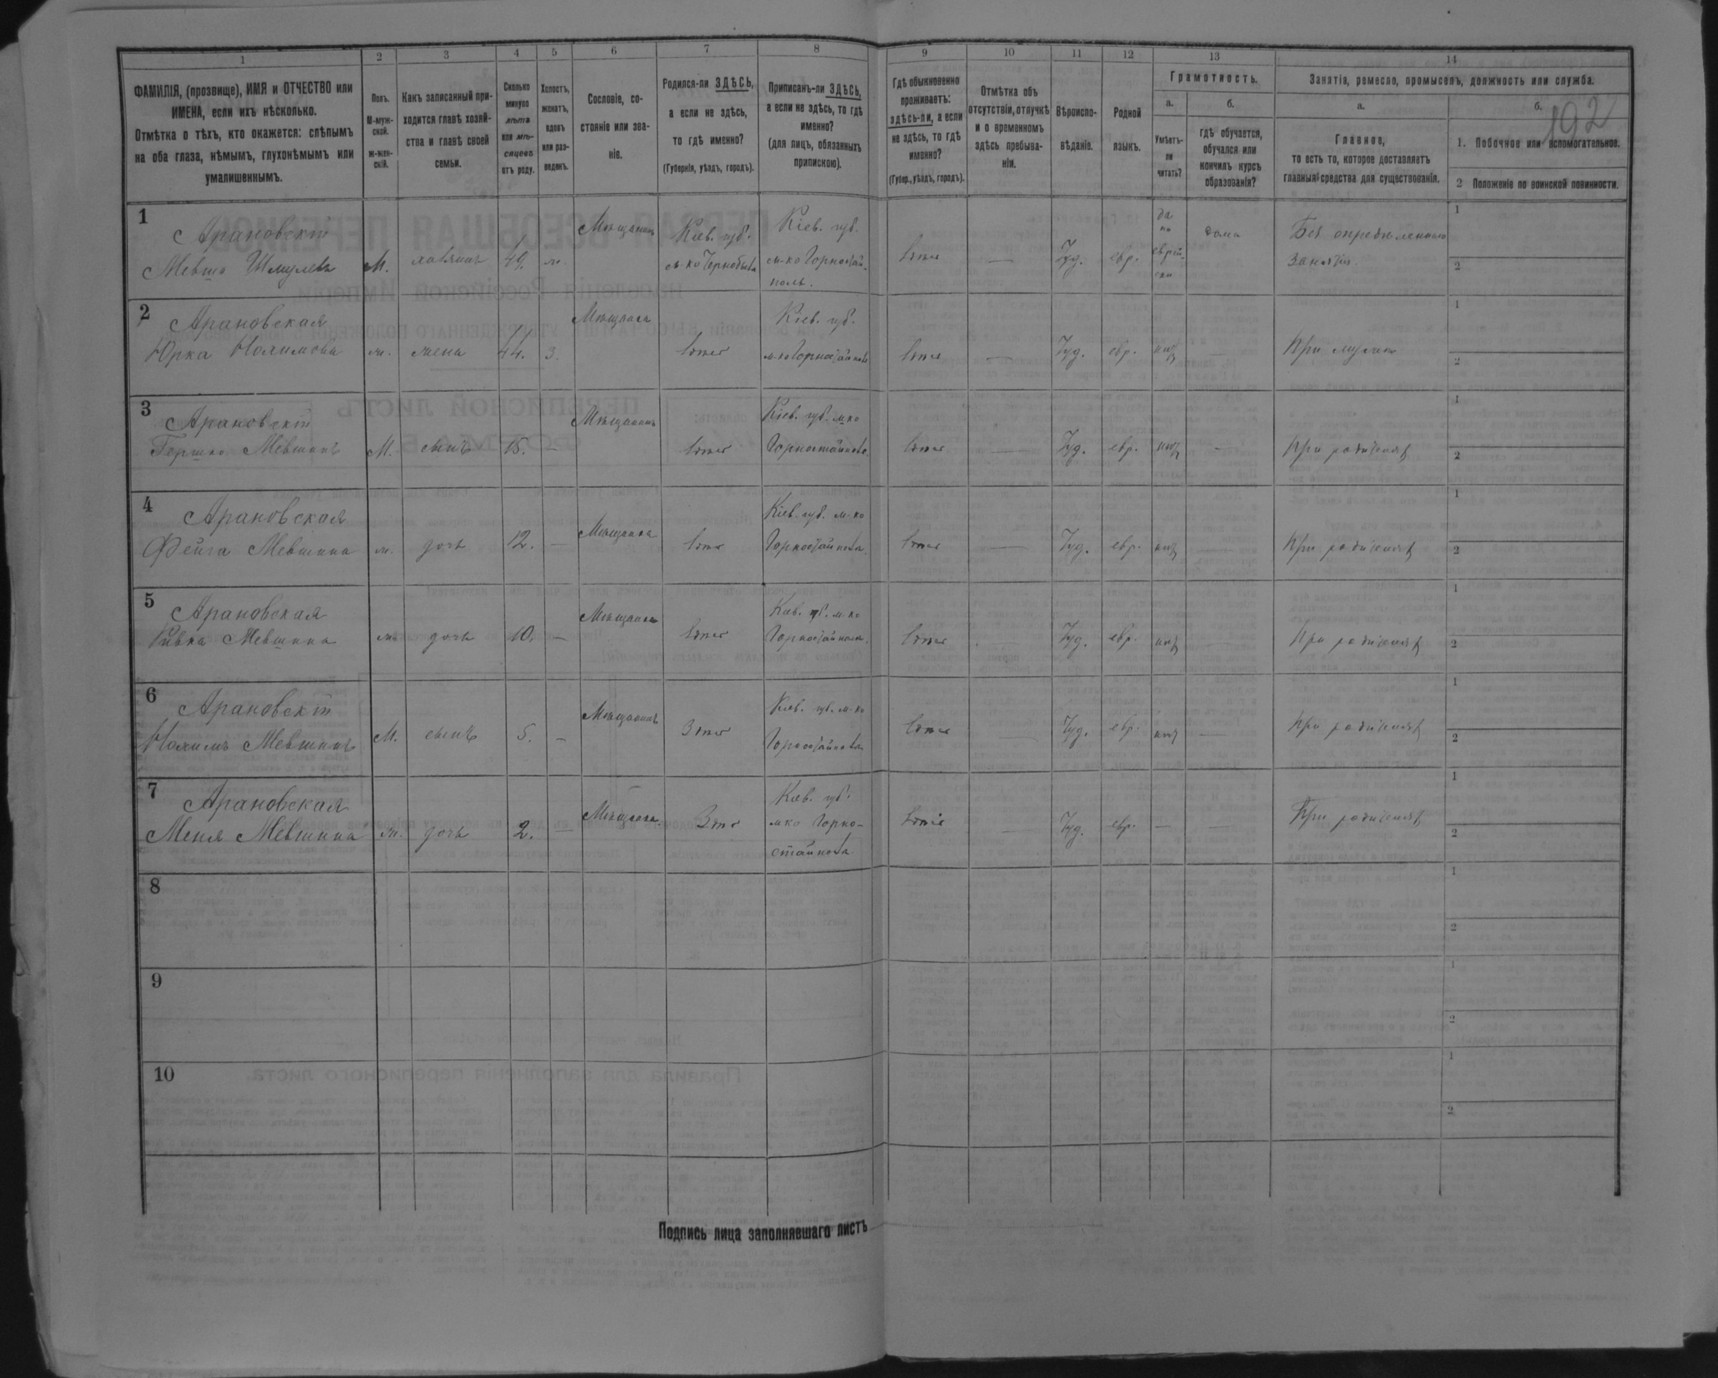 1 2 3 4 5 6 7 8 9 10 11 12 13 14
ФАМИЛІЯ, (прозвище), ИМЯ и ОТЧЕСТВО или
ИМЕНА, если ихъ нѣсколько.
Отмѣтка о тѣхъ, кто окажется: слѣпымъ
на оба глаза, нѣмымъ, глухонѣмымъ или
умалишеннымъ.
Полъ.
М-муж-
ской.
ж-жен-
скій.
Какъ записанный при-
ходится главѣ хозяй-
ства и главѣ своей
семьи.
Сколько
минуло
лѣтъ
или мѣ-
сяцевъ
отъ роду.
Холостъ,
женатъ,
вдовъ
или раз-
веденъ.
Сословіе, со-
стояніе или зва-
ніе.
Родился-ли ЗДѢСЬ,
а если не здѣсь,
то гдѣ именно?
(Губернія, уѣздъ, городъ).
Приписанъ-ли ЗДѢСЬ,
а если не здѣсь, то гдѣ
именно?
(для лицъ, обязанныхъ
припискою).
Гдѣ обыкновенно
проживаетъ:
здѣсь-ли, а если
не здѣсь, то гдѣ
именно?
(Губер., уѣздъ, городъ).
Отмѣтка объ
отсутствіи, отлучкѣ
и о временномъ
здѣсь пребыва-
ніи.
Вѣроиспо-
вѣданіе.
Родной
языкъ.
Грамотность.
а. б.
Умѣетъ-
ли
читать?
гдѣ обучается,
обучался или
кончилъ курсъ
образованія?
Занятія, ремесло, промыселъ, должность или служба.
а. б.
192
Главное,
то есть то, которое доставляетъ
главныя средства для существованія.
1. Побочное или вспомогательное.
2 Положеніе по воинской повинности.
1
Арановскій
Мевша Шмулевъ М. хозяинъ 49. ж
Мѣщанинъ
Кіев. губ.
м-ко Чернобыль
Кіев. губ.
м-ко Горностай-
поль.
тоже — Іуд. евр.
да
по
еврей-
ски
дома
Безъ опредѣленнаго
занятія
1
2
2
Арановская
Юрка Нохимова ж. жена 44. З.
Мѣщанка
тоже
Кіев. губ.
м-ко Горностайполь
тоже — Іуд. евр. нѣт — При мужѣ
1
2
3
Арановскій
Гершко Мевшинъ М. сынъ 15. —
Мѣщанинъ
тоже
Кіев. губ. м-ко
Горностайполь
тоже — Іуд. евр. нѣт - При родителях
1
2
4
Арановская
Фейга Мевшина ж. дочь 12. —
Мѣщанка
тоже
Кіев. губ. м-ко
Горностайполь
тоже — Іуд. евр. нѣт — При родителях
1
2
5
Арановская
Ривка Мевшина ж. дочь 10. —
Мѣщанка
тоже
Кіев. губ. м-ко
Горностайполь
тоже — Іуд. евр. нѣт — При родителях
1
2
6
Арановскій
Нохимъ Мевшинъ М. сынъ 5. —
Мѣщанинъ
тоже
Кіев. губ. м-ко
Горностайполь
тоже — Іуд. евр. нѣт — При родителях
1
2
7
Арановская
Меня Мевшина ж. дочь 2. —
Мѣщанка
тоже
Кіев. губ.
м-ко Горно-
стайполь
тоже — Іуд. евр. — — При родителях
1
2
8
1
2
9
1
2
10
1
2
Подпись лица заполнявшаго листъ